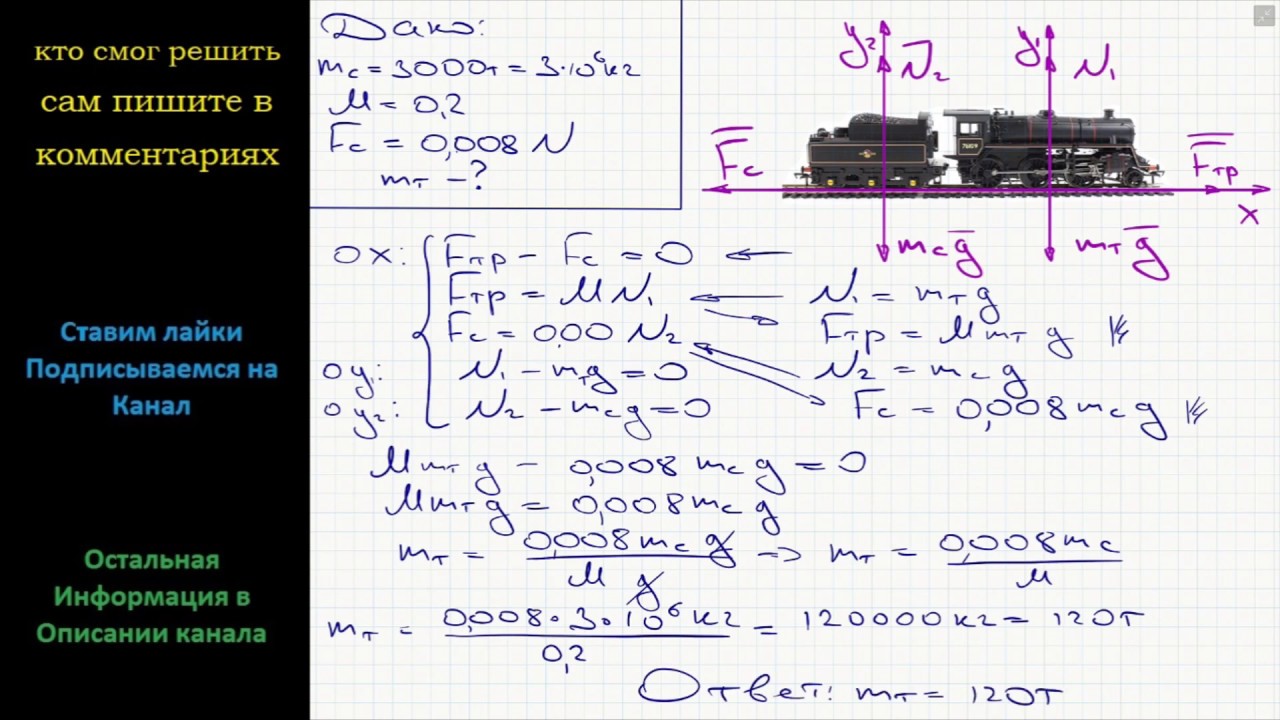 кто смог решить
сам пишите в
комментариях
Ставим лайки
Подписываемся на
Канал
Остальная
Информация в
Описании канала
Дано:
mс = 3000т = 3·10⁶кг
M = 0,2
Fс = 0,008 N
mт – ?
y² N₂ y¹ N₁
76079
Fс Fтр
x
mсg mтg
ox: Fтр – Fс = 0
Fтр = MN₁ N₁ = mтg
Fс = 0,00 N₂ Fтр = Mmтg
oy₁: N₁ – mтg = 0 N₂ = mсg
oy₂: N₂ – mсg = 0 Fс = 0,008mсg
Mmтg – 0,008mсg = 0
Mmтg = 0,008mсg
mт = 0,008mсg / Mg => mт = 0,008mс / M
mт = 0,008·3·10⁶кг / 0,2 = 120000кг = 120т
Ответ: mт = 120т